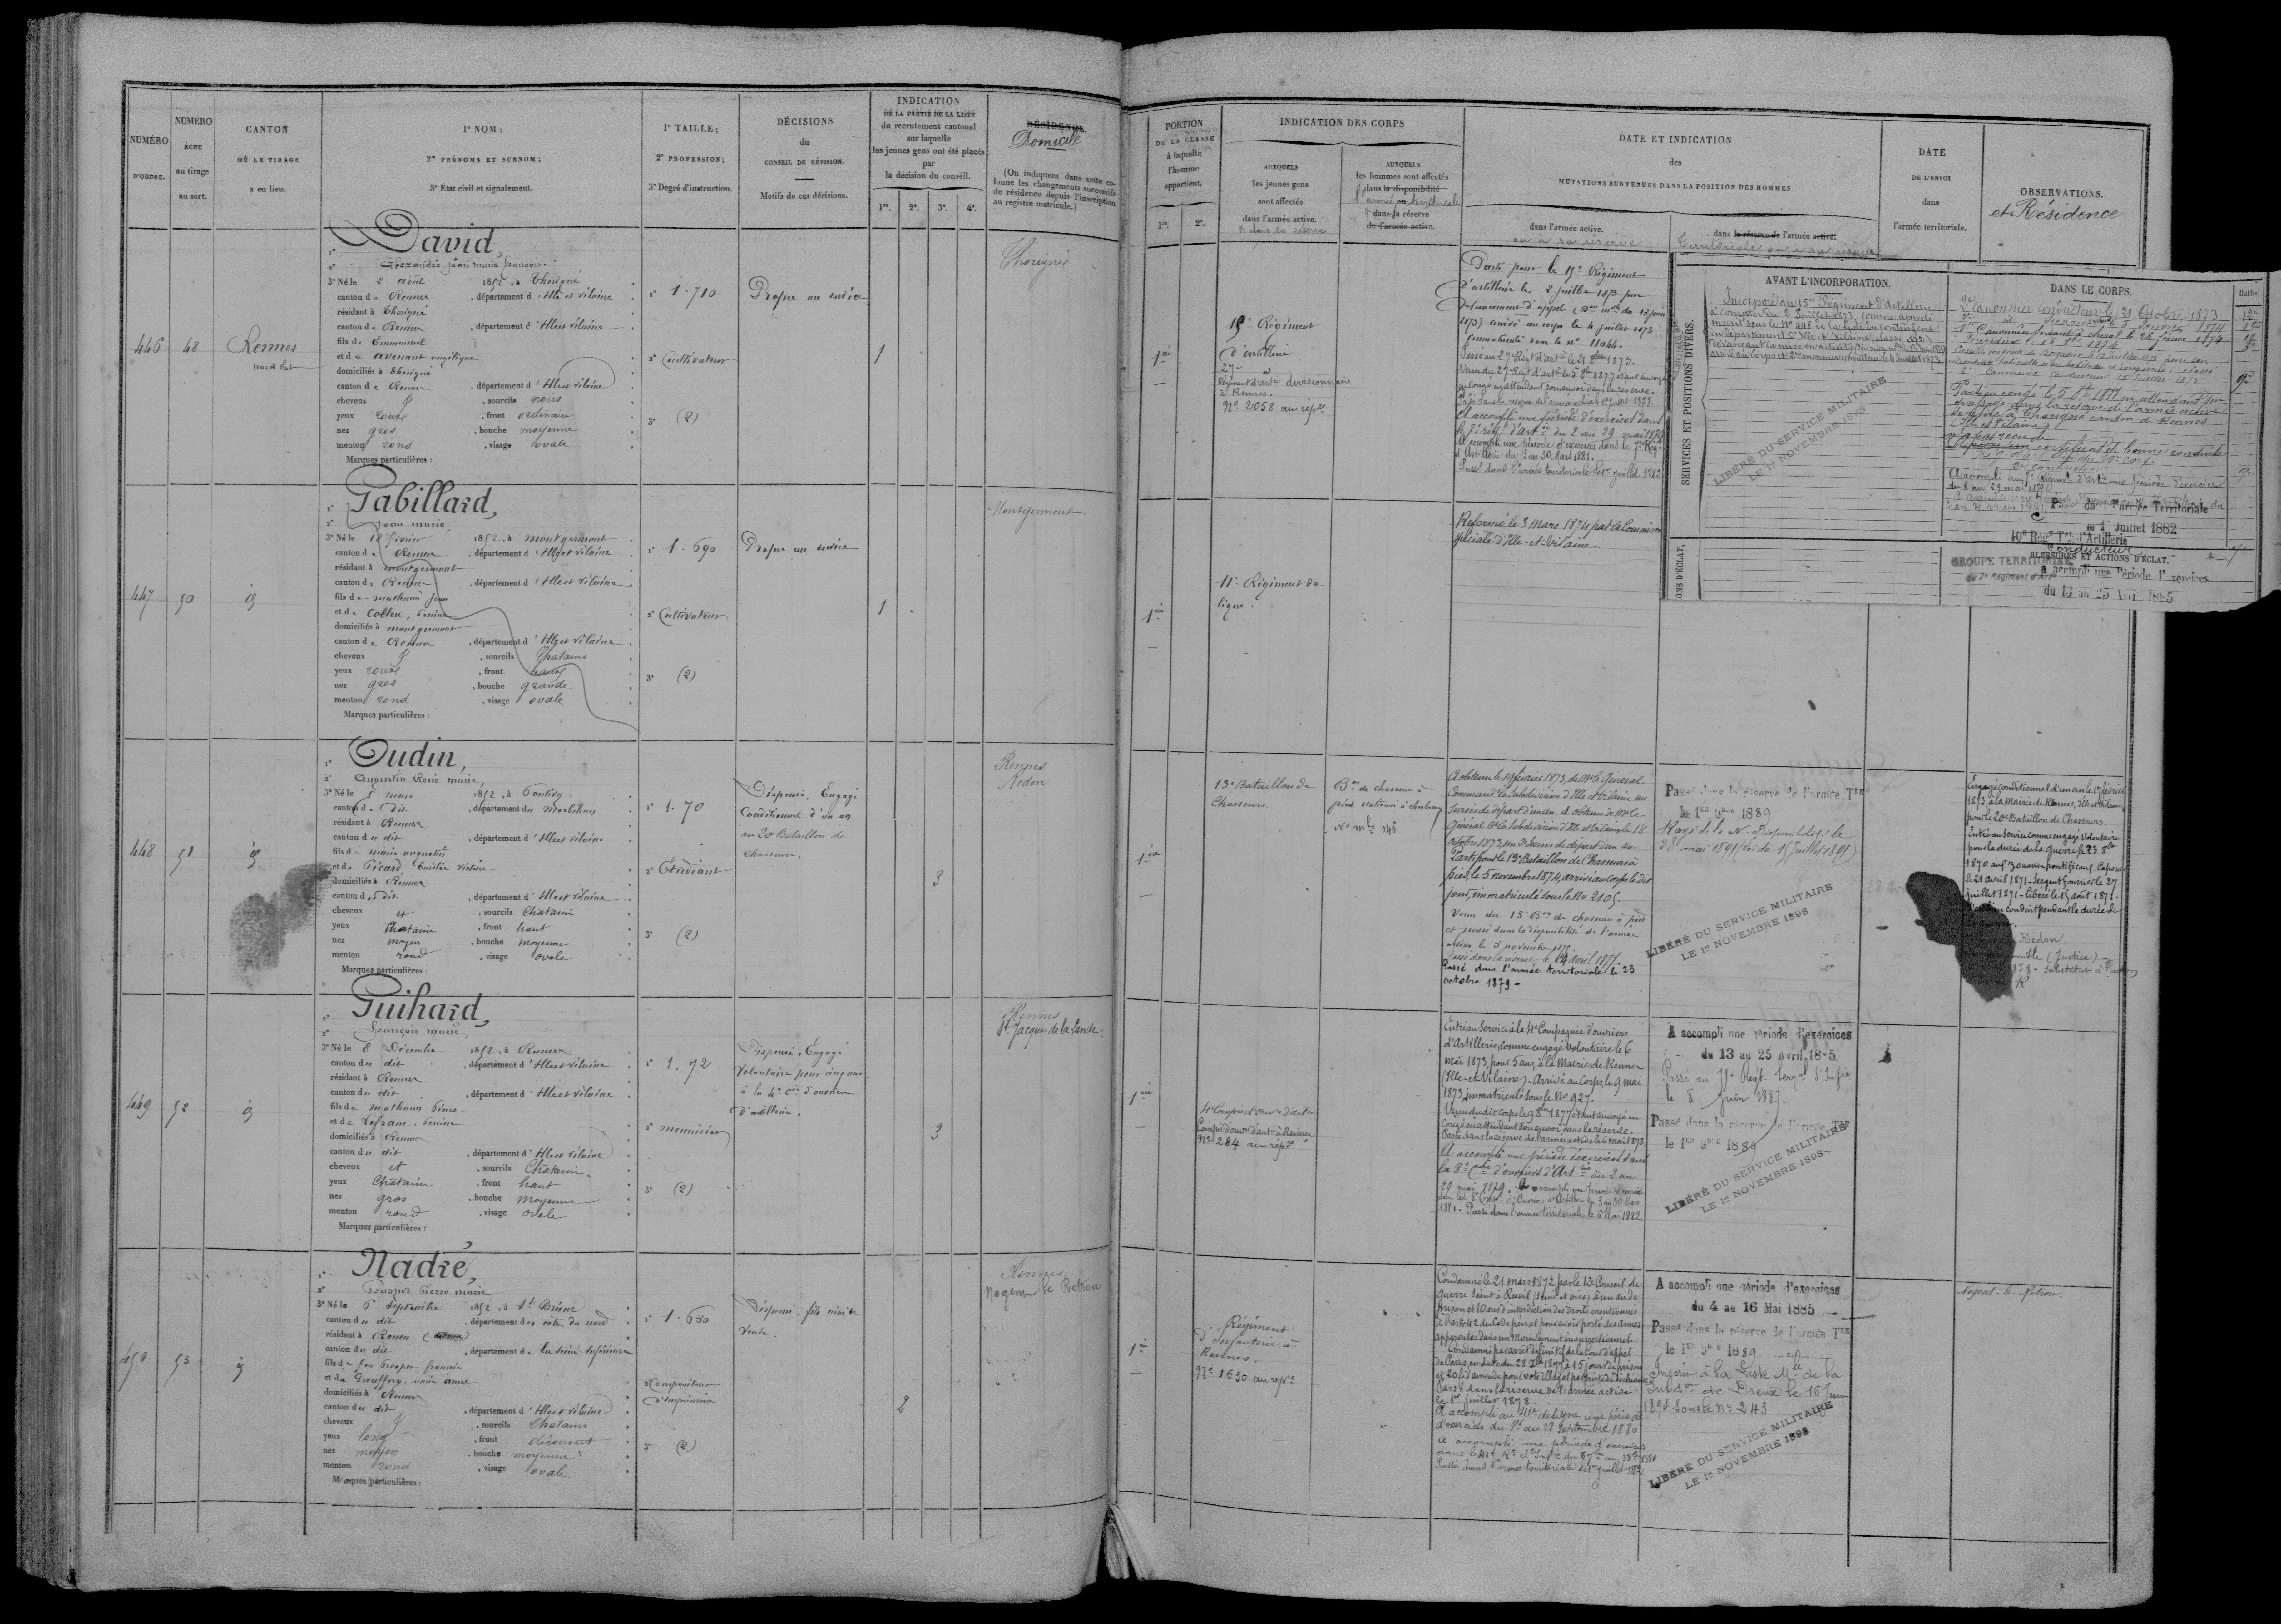 NUMÉRO
D'ORDRE.
NUMÉRO
ÉCHU
au tirage
au sort.
CANTON
OÙ LE TIRAGE
a eu lieu.
1° NOM;
2° PRÉNOMS ET SURNOM;
3° État civil et signalement.
1° TAILLE;
2° PROFESSION;
3° Degré d'instruction.
DÉCISIONS
du
CONSEIL DE RÉVISION.
Motifs de ces décisions.
INDICATION
DE LA PARTIE DE LA LISTE
du recrutement cantonal
sur laquelle
les jeunes gens ont été placés
par
la décision du conseil.
1re. 2e. 3e. 4e.
RÉSIDENCE.
Domicile
(On indiquera dans cette co-
lonne les changements successifs
de résidence depuis l'inscription
au registre matricule.)
446 48 Rennes
nord est
1° David,
2° Alexandre jean marie françois
3° Né le 2 août 1852, à Thorigné
canton de Rennes, département d'Ille et vilaine
résidant à Thorigné
canton de Rennes, département d'Ille et vilaine
fils de Emmanuel
et de avenant angélique
domiciliés à Thorigné
canton de Rennes, département d'Ille et vilaine
cheveux, sourcils noirs
yeux roux, front ordinaire
nez gros, bouche moyenne
menton rond, visage ovale
Marques particulières :
1° 1.710
2° Cultivateur
3° (2)
Propre au service
1
Thorigné
447 50 id
1° Gabillard,
2° jean marie
3° Né le 18 février 1852, à montgermont
canton de Rennes, département d'Ille et vilaine
résidant à montgermont
canton de Rennes, département d'Ille et vilaine
fils de mathurin jean
et de Colleu, Perrine
domiciliés à montgermont
canton de Rennes, département d'Ille et vilaine
cheveux, sourcils Chatains
yeux roux, front haut
nez gros, bouche grande
menton rond, visage ovale
Marques particulières :
1° 1.690
2° Cultivateur
3° (2)
Propre au service
1
Montgermont
448 51 id
1° Oudin,
2° Augustin René marie,
3° Né le 5 mars 1852, à Pontivy
canton de dit, département du Morbihan
résidant à Rennes
canton du dit, département d'Ille et vilaine
fils de marie augustin
et de Picard, Emilie victoire
domiciliés à Rennes
canton du dit, département d'Ille et vilaine
cheveux et, sourcils Chatains
yeux Chatain, front haut
nez moyen, bouche moyenne
menton rond, visage ovale
Marques particulières :
1° 1.70
2° Etudiant
3° (2)
Dispensé. Engagé
Conditionnel d'un an
au 20e Bataillon de
Chasseurs.
3
Rennes
Redon
449 52 id
1° Guihard,
2° françois marie,
3° Né le 8 Décembre 1852, à Rennes
canton du dit, département d'Ille et vilaine
résidant à Rennes
canton du dit, département d'Ille et vilaine
fils de mathurin Pierre
et de Lefranc, Perrine
domiciliés à Rennes
canton du dit, département d'Ille et vilaine
cheveux et, sourcils Chatain
yeux Chatain, front haut
nez gros, bouche moyenne
menton rond, visage ovale
Marques particulières :
1° 1.72
2° menuisier
3° (2)
Dispensé. Engagé
Volontaire pour cinq ans
à la 4e Cie d'ouvriers
d'artillerie.
3
Rennes
St Jacques de la Lande
450 53 id
1° Nadré,
2° Prosper Pierre marie
3° Né le 6 Septembre 1852, à St Brieuc
canton du dit, département des côtes du nord
résidant à Rouen
canton du dit, département de la Seine inférieure
fils de feu Prosper françois
et de Gauffeny, marie anne
domiciliés à Rennes
canton du dit, département d'Ille et vilaine
cheveux, sourcils Chatains
yeux, front découvert
nez moyen, bouche moyenne
menton rond, visage ovale
Marques particulières :
1° 1.630
2° Compositeur
d'Imprimerie
3° (2)
Dispensé. fils aîné de
Veuve.
2
Rennes
Nogent le Rotrou
PORTION
DE LA CLASSE
à laquelle
l'homme
appartient.
1re. 2e.
INDICATION DES CORPS
AUXQUELS
les jeunes gens
sont affectés
dans l'armée active.
& dans la réserve
AUXQUELS
les hommes sont affectés
dans la disponibilité
ou
l'armée territoriale
dans la réserve
de l'armée active.
DATE ET INDICATION
des
MUTATIONS SURVENUES DANS LA POSITION DES HOMMES
dans l'armée active.
ou à sa réserve
dans la réserve de l'armée active.
Territoriale ou à sa réserve
DATE
DE L'ENVOI
dans
l'armée territoriale.
OBSERVATIONS.
et Résidence
1ère
15e Régiment
d'artillerie
27e
Régiment d'arte divisionnaire
à Rennes.
No 2058 au répre
Parti pour le 15e Régiment
d'artillerie le 2 juillet 1873 par
devancement d'appel (Don mlle du 13 juin
1873) arrivé au corps le 4 juillet 1873
Immatriculé sous le No 11044.
Passé au 27e Régt d'arte le 21 8bre 1873.
A accompli une période d'exercices dans
le 7e régt d'artie du 2 au 29 mai 1879
A accompli une période d'exercices dans le 7e Régt
d'Artillerie du 3 au 30 Mars 1881.
Passé dans l'armée territoriale le 1er juillet 1882
AVANT L'INCORPORATION.
SERVICES ET POSITIONS DIVERS.
Incorporé au 15e Régiment d'Artillerie
à compter du 2 Juillet 1873, comme appelé
inscrit sous le No 446 de la liste du contingent
du département d'Ille et Vilaine (classe 1872)
arrivé au Corps et 2e Canonnier conducteur le 4 Juillet 1873
LIBÉRÉ DU SERVICE MILITAIRE
LE 1er NOVEMBRE 1898
DANS LE CORPS.
Batte.
2e Canonnier conducteur le 21 Octobre 1873
1er Canonnier servant à cheval le 26 février 1874
Brigadier le 16 8bre 1874
2e Canonnier Conducteur 15 Juillet 1875
Parti en congé le 5 8bre 1877 en attendant son
passage dans la réserve de l'armée active
se retire à Thorigné canton de Rennes
(Ille et Vilaine)
un certificat de bonne conduite
Passé dans l'armée Territoriale
le 1er Juillet 1882
10e Régt Tal d'Artillerie
Conducteur
BLESSURES ET ACTIONS D'ÉCLAT.
GROUPE TERRITORIAL
du 7e Régiment d'Arte
A accompli une Période d'exercices
du 13 au 25 Avril 1885
ONS D'ÉCLAT,
1ère
11e Régiment de
ligne.
Réformé le 3 Mars 1874 par la Commission
spéciale d'Ille-et-Vilaine.
1ère
13e Bataillon de
Chasseurs.
Bon de chasseurs à
pied stationné à
No mle 145
A obtenu le 19 février 1873, de Mr le Général
Command. la Subdivision d'Ille et Vilaine un
Sursis de départ d'un an. A obtenu de Mr le
Général Ct la Subdivision d'Ille et Vilaine le 18
octobre 1873, un 2e Sursis de départ d'un an.
Parti pour le 13e Bataillon de Chasseurs à
pied, le 5 novembre 1874, arrivé au Corps le dit
jour, immatriculé sous le No 2105.
Venu du 13e Bon de chasseurs à pied
et passé dans la disponibilité de l'armée
active le 5 novembre 1875
Passé dans la réserve le 14 avril 1877.
Passé dans l'armée territoriale le 23
octobre 1879 -
Passé dans la réserve de l'armée Tle
le 1er 9bre 1889
Rayé de la N. Disponibilité le
28 mai 1891
LIBÉRÉ DU SERVICE MILITAIRE
LE 1er NOVEMBRE 1898
Engagé conditionnel d'un an le 17 février
1873, à la Mairie de Rennes, Ille et Vilaine
pour le 20e Bataillon de Chasseurs.
Entré au Service comme engagé volontaire
pour la durée de la Guerre le 23 8bre
1870 aux Zouaves pontificaux. Caporal
le 21 Avril 1871. Sergent fourrier le 27
juillet 1871. Libéré le 15 août 1871.
conduit pendant la durée de
la guerre.
Redon
(Justice)
Substitut à
1ère
4e Compie d'ouvers d'artie
Compie d'ouvers d'arte à Rennes
No 284 au répre
Entré au Service à la 4e Compagnie d'ouvriers
d'Artillerie, comme engagé Volontaire le 6
mai 1873, pour 5 ans, à la Mairie de Rennes
(Ille-et-Vilaine) - Arrivé au Corps le 9 mai
1873, immatriculé sous le No 927.
Venu du dit Corps le 9 8bre 1877 étant envoyé en
Congé en attendant son envoi dans la réserve.
Passé dans la réserve de l'armée active le 6 mai 1878.
A accompli une période d'exercices dans
la 8e Cie d'ouvriers d'Artie du 2 au
29 mai 1879. A accompli une période d'exercices
dans la 8e Compie d'Ouvriers d'Artillerie du 3 au 30 Mars
1881. - Passé dans l'armée territoriale le 6 Mai 1882
A accompli une période d'exercices
du 13 au 25 avril 18-5
Passé au Régt d'Infie
le 8 Juin 1887
Passé dans la réserve de l'armée Tle
le 1er 9bre 1889
LIBÉRÉ DU SERVICE MILITAIRE
LE 1er NOVEMBRE 1898
1ère
Régiment
d'Infanterie à
Rennes.
No 1630 au repre
Condamné le 21 mars 1872 par le 13e Conseil de
guerre séant à Rueil (Seine et oise) à un an de
prison et 10 ans d'interdiction des droits mentionnés
à l'art. 42 du Code pénal pour avoir porté des armes
apparentes dans un Mouvement insurrectionnel
Condamné par arrêt définitif de la Cour d'appel
de Paris, en date du 28 Xbre 1877, à 15 jours de prison
Passé dans la réserve de l'armée active
le 1er juillet 1878.
A accompli au 41e de ligne une période
d'exercices du 1er au 28 Septembre 1880
A accompli une période d'exercices
Passé dans l'armée territoriale le 1er juillet 1882
A accompli une période d'exercices
du 4 au 16 Mai 1885
Passé dans la réserve de l'armée Tle
le 1er 9bre 1889
Inscrit à la Liste Mle de la
Subdon de Dreux le 16 Juin
1894 Sous le No 243
LIBÉRÉ DU SERVICE MILITAIRE
LE 1er NOVEMBRE 1898
Nogent-le-Rotrou.